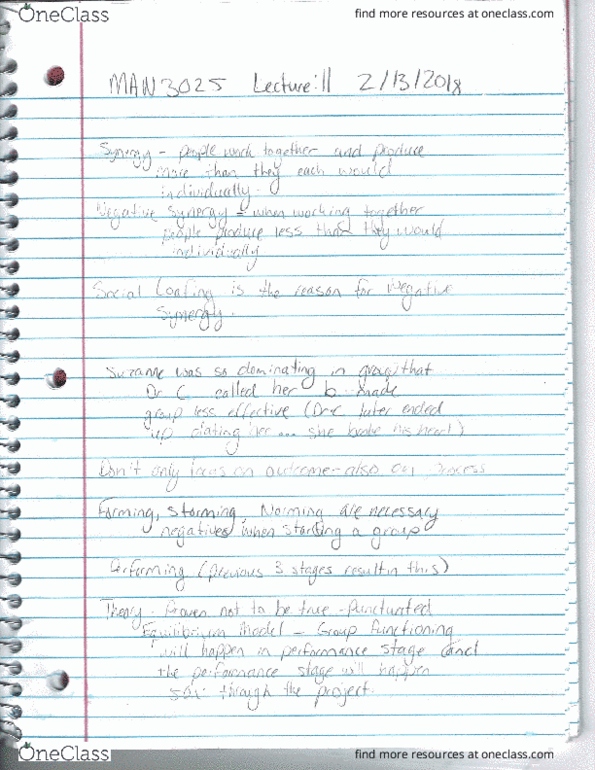 OneClass
find more resources at oneclass.com
MAN3025 Lecture:11 2/13/2018
Synergy - people work together and produce
more than they each would
individually.
Negative Synergy - when working together
people produce less than they would
individually
Social Loafing is the reason for Negative
Synergy.
Suzanne was so dominating in group that
Dr C called her b made
group less effective (Dr C later ended
up dating her ... she broke his heart)
Don't only focus on outcome - also on process
Forming, storming, Norming are necessary
negatives when starting a group
Performing (previous 3 stages result in this)
Theory - Proven not to be true - Punctuated
Equilibrium Model - Group functioning
will happen in performance stage and
the performance stage will happen
50% through the project.
OneClass
find more resources at oneclass.com